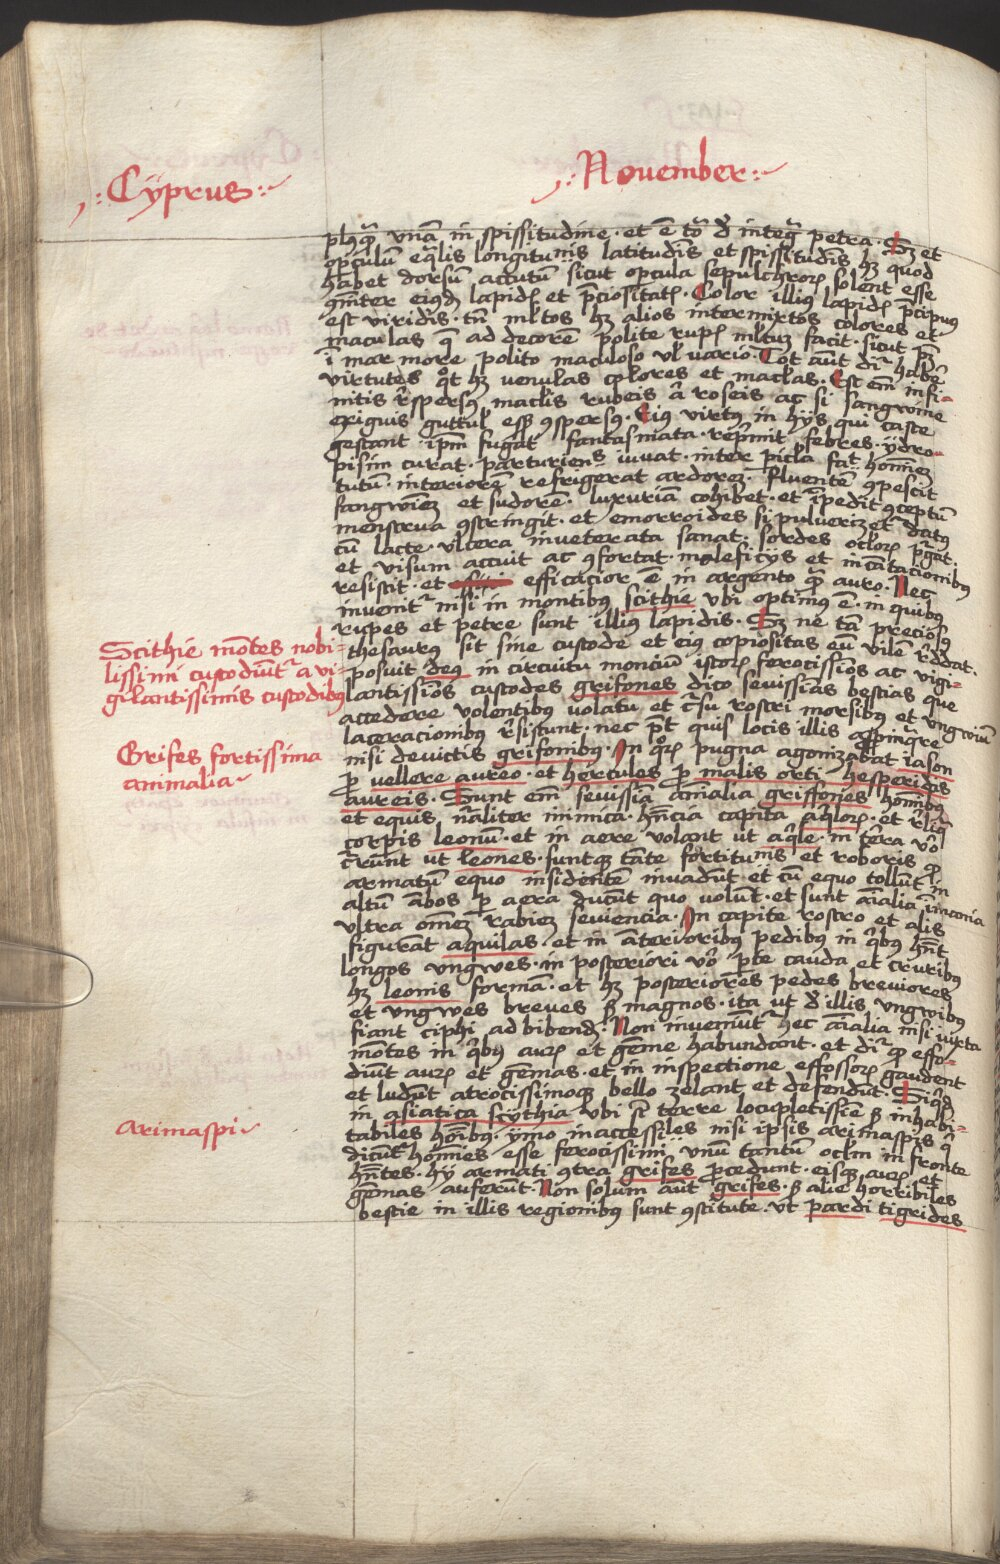 .: Cyprus :.
.: November :.
plusquam vnam in spissitudine · et est totum de integra petra · Sed et
operculum equalis longitudinis latitudinis et spissitudinis habet quod
habet dorsum accutum sicut opercula sepulchrorum solent esse
communiter eiusdem lapidis et preciositatis · Color illius lapidis precipuus
est viridis · tamen multos habet alios intermixtos colores et
maculas que ad decorem polite rupis multum facit · sicut patet
in marmore polito maculoso vel vario · Tot autem dicitur habere
virtutes quot habet venulas colores et maculas · Est enim infi=
nitis respersus maculis rubeis ac roseis ac si sangwine
exiguis guttulis esset conspersus · Eius virtus in hijs qui caste
gestant ipsum fugat fantasmata · reprimit febres · ydro=
pisim curat · parturiens iuvat · inter pericula facit hominem
tutum · interiorem refrigerat ardorem · Fluentem compescit
sangwinem et sudorem · luxuriam cohibet · et impedit conceptum
menstrua constringit · et emorroides si pulverizetur datus
cum lacte · vlcera inveterata sanat · sordes oculorum purgat ·
et visum accuit ac confortat · maleficijs et incantacionibus
resistit · et efficacior est in argento quam auro · Nec
invenitur nisi in montibus scithie vbi optimus est · in quibus
rupes et petre sunt illius lapidis · Sed ne tam preciosus
thesaurus sit sine custode et eius copiositas eum vilem reddat ·
posuit deus in circuitu moncium istorum ferocissimos ac vigi=
lantissimos custodes grifones dico sevissimas bestias que
accedere volentibus volatu et cursu rostri morsibus et vngwium
laceracionibus resistunt · nec potest quis locis illis appropinquare
nisi devictis grifonibus · In quorum pugna agonizabat iason
pro vellere aureo · et hercules pro malis orti hesperidis
aureis · Sunt enim sevissima animalia griffones hominibus
et equis naturaliter inimica · habencia capita aquilorum · et reliqua
corporis leonum · et in aere volant ut aquile · in terra vero
currunt ut leones · suntque tante fortitudinis et roboris quod
armatum equo insidentem invadunt et cum equo tollunt in
altum ambos per aera ducunt quo volunt · et sunt animalia inmania
vltra omnem rabiem seviencia · In capite rostro et alis
figurant aquilas · et in anterioribus pedibus in quibus habent
longos vngwes · in posteriori vero parte cauda et cruribus
habet leonis formam · et habet posteriores pedes breviores
et vngwes breves sed magnos · ita ut de illis vngwibus
fiant ciphi ad bibendum · Non inveniuntur hec animalia nisi iuxta
montes in quibus aurum et gemme habundant · et dicitur quod effo=
diunt aurum et gemmas · et in inspectione effossorum gaudent
et ludunt atrocissimoque bello zelant et defendunt · Siquidem
in asiatica scythia vbi sunt terre locupletissime sed inhabi=
tabiles hominibus · ymo inaccessiles nisi ipsis arimaspis qui
dicuntur homines esse ferocissimi vnum tantum oculum in fronte
habentes · hy armati contra grifes procedunt · eisque aurum et
gemmas auferunt · Non solum autem grifes · sed alie horribiles
bestie in illis regionibus sunt constitute · vt pardi tigrides
Scithie montes nobi=
lissimi custodiuntur a vi=
gilantissimis custodibus
Grifes fortissima
animalia
arimaspi